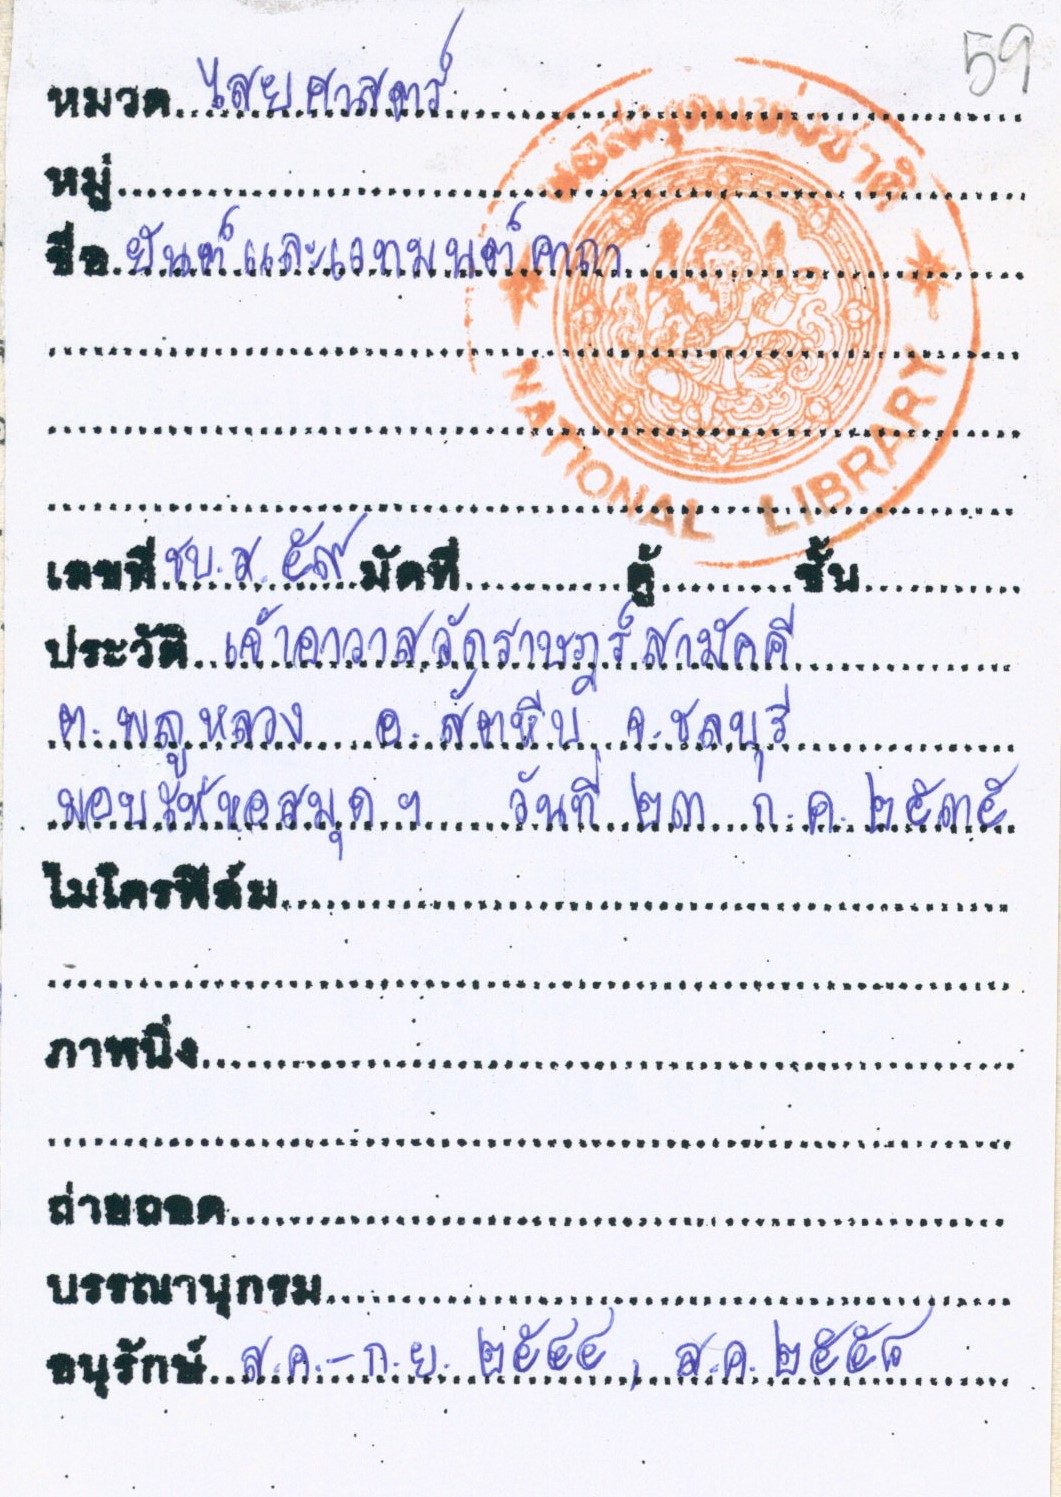 59
หมวด ไสยศาสตร์
หมู่
ชื่อ ยันต์และเวทมนต์คาถา
หอสมุดแห่งชาติ
NATIONAL LIBRARY
เลขที่ ชบ.ส. ๕๙ มัดที่ ตู้ ชั้น
ประวัติ เจ้าอาวาสวัดราษฎร์สามัคคี
ต. พลูหลวง อ. สัตหีบ จ. ชลบุรี
มอบให้หอสมุดฯ วันที่ ๒๓ ก.ค. ๒๕๓๕
ไมโครฟิล์ม
ภาพนิ่ง
ถ่ายถอด
บรรณานุกรม
อนุรักษ์ ส.ค.-ก.ย. ๒๕๔๔, ส.ค. ๒๕๕๘